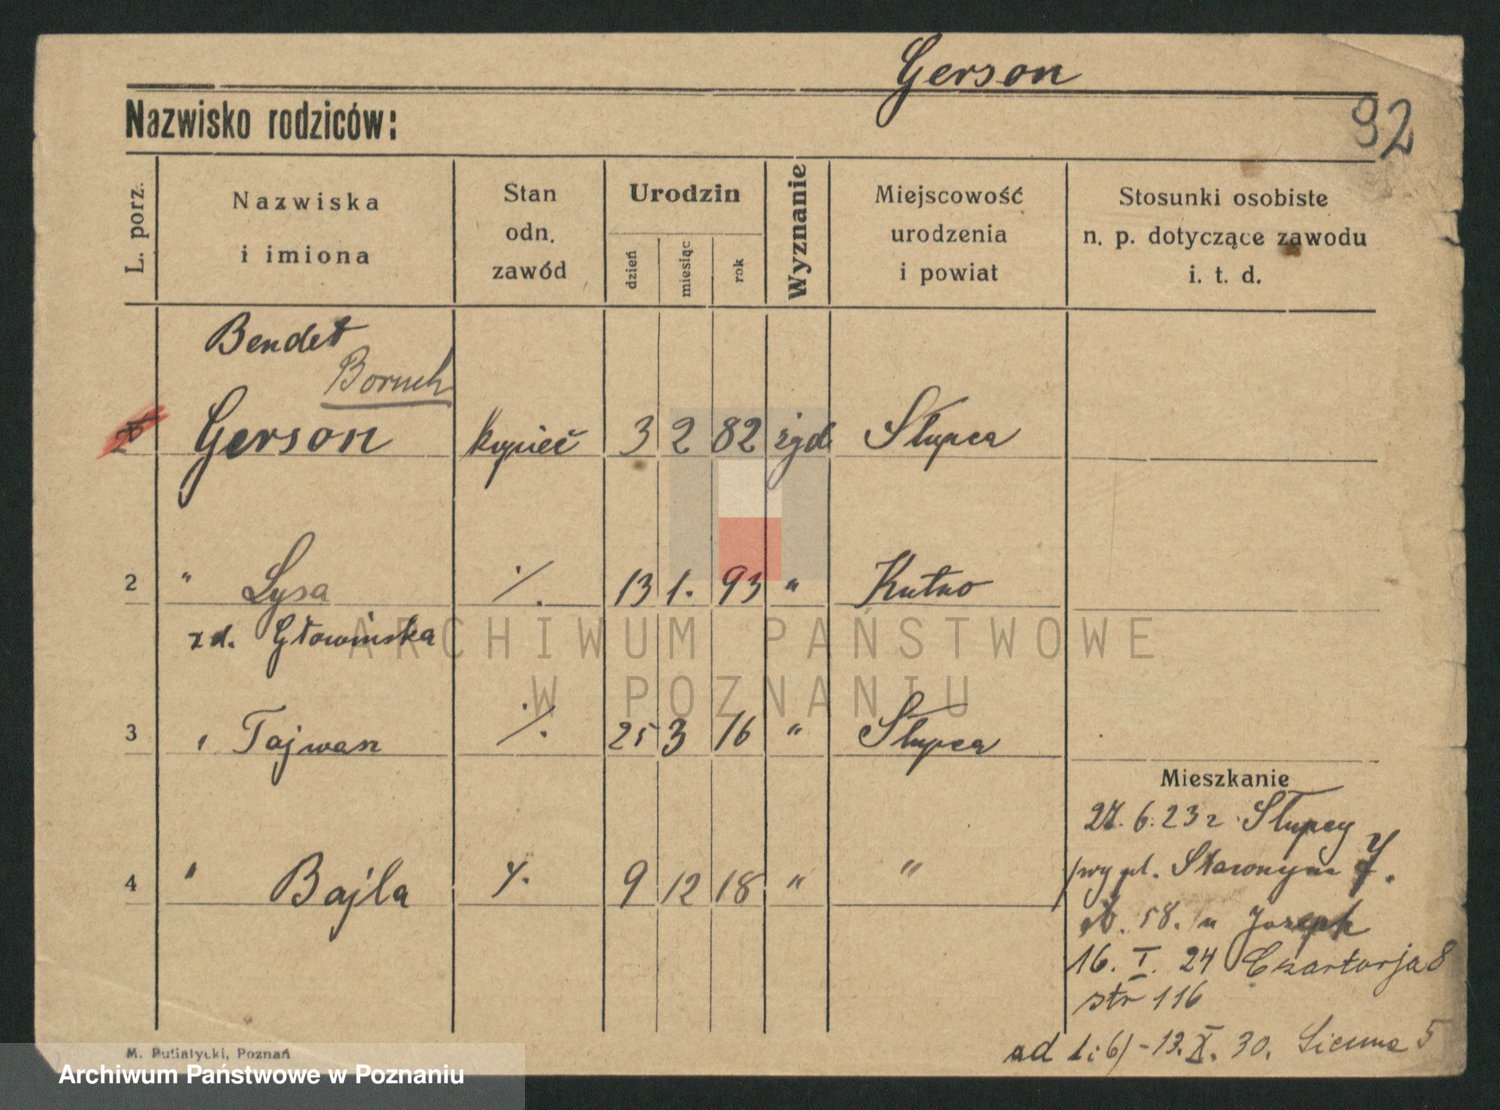 Gerson
Nazwisko rodziców:
92
L. porz.
Nazwiska
i imiona
Stan
odn.
zawód
Urodzin
dzień
miesiąc
rok
Wyznanie
Miejscowość
urodzenia
i powiat
Stosunki osobiste
n. p. dotyczące zawodu
i. t. d.
Bendet
Boruch
Gerson kupiec 3 2 82 żyd Słupca
2 " Lysa ·/. 13 1. 93 " Kutno
zd. Głowińska
3 " Tajwan ·/. 25 3 16 " Słupca
4 " Bajla 9 12 18 " "
Mieszkanie
6. 23 r Słupcy
pl.
58. u Joseph
16. I. 24 Czartorja 8
str 116
ad 1 i 6) - 13. X. 30. Sienna 5
M. Putiatycki, Poznań
ARCHIWUM PAŃSTWOWE
W POZNANIU
Archiwum Państwowe w Poznaniu